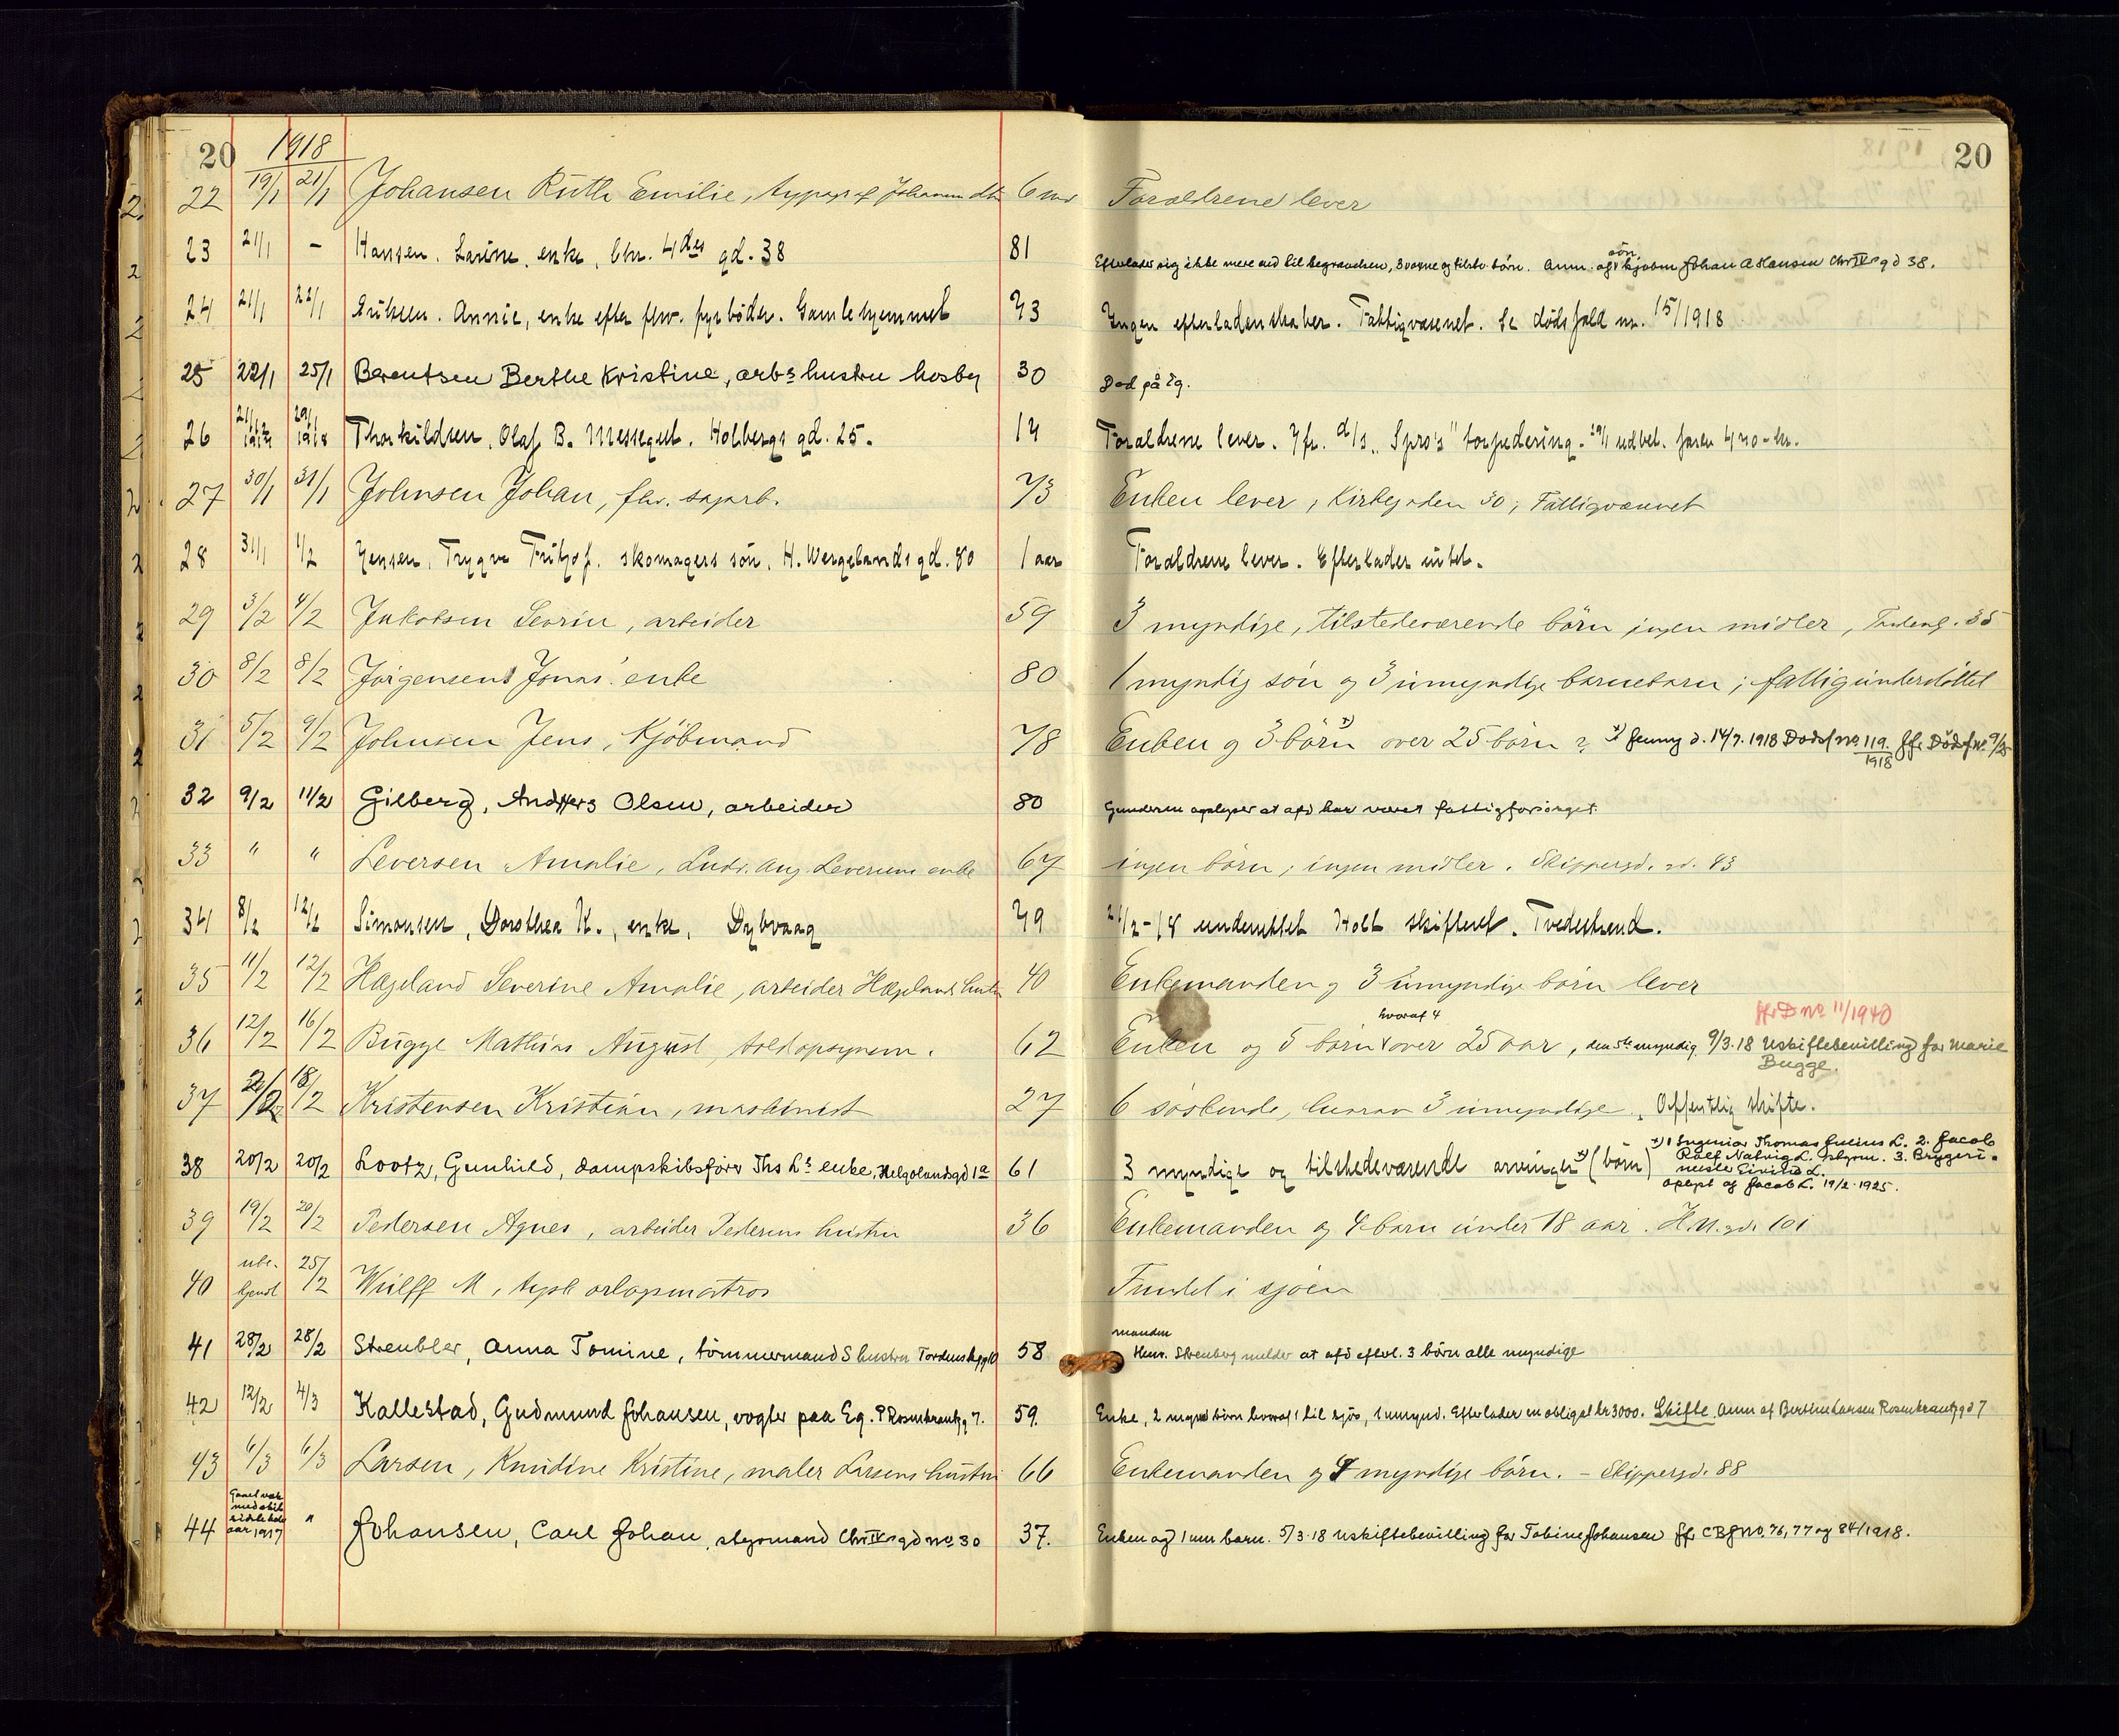 20 1918 20
22 19/1 21/1 Johansen Ruth Emilie, typogr. Johansens dtr 6 md Forældrene lever
23 21/1 – Hansen. Larine, enke, Chr. 4des gd. 38 81 Efterlader sig ikke mere end til begravelsen, 3 voxne og tilstv. børn. Anm. af søn kjøbm Johan A Hansen Chr IVs gd 38.
24 21/1 22/1 Eriksen. Annie, enke efter fhv. fyrbøder. Gamlehjemmet 73 Ingen efterladenskaber. Fattigvæsenet. Se dødsfald nr. 15/1918
25 22/1 25/1 Berentsen Berthe Kristine, arbs hustru hosby 30 Død på Eg.
26 21/12 1917 29/1 1918 Thorkildsen, Olaf B. Messegut. Holbergs gd. 25. 17 Forældrene lever. Jfr. d/s "Spro's" torpedering. 29/1 udbet. faren 470 - kr.
27 30/1 31/1 Johnsen Johan, fhv. sagarb. 73 Enken lever, Kirkegaden 30; Fattigvæsenet
28 31/1 1/2 Jensen, Trygve Fritjof. skomagers søn, H. Wergelands gd. 80 1 aar Forældrene lever. Efterlader intet.
29 3/2 4/2 Jakobsen Severin, arbeider 59 3 myndige, tilstedeværende børn ingen midler, Tordensg. 35
30 8/2 8/2 Jørgensens Jonas' enke 80 1 myndig søn og 3 umyndige barnebarn; fattigunderstøttet
31 5/2 9/2 Johnsen Jens, Kjøbmand 78 Enken og 3 børn x) over 25 børn x) Jenny d. 14/7. 1918 Dødsf No. 119. 1918 Jfr Dødsf No 9/25
32 9/2 11/2 Gilberg, Anders Olsen, arbeider 80 Gundersen oplyser at afd har været fattigforsørget.
33 " " Leversen Amalie, Ludv. Aug. Leversens enke 67 ingen børn; ingen midler. Skippergd. nd. 43
34 8/2 12/2 Simonsen, Dorothea K., enke, Dybvaag 79 21/2-18 underrettet Holt skifteret. Tvedestrand.
35 11/2 12/2 Hægeland Severine Amalie, arbeider Hægelands hustru 40 Enkemanden og 3 umyndige børn lever
36 12/2 16/2 Bugge Mathias August, toldopsynsm. 62 Enken og 5 børn hvoraf 4 over 25 aar, den 5te myndig 9/3.18 Uskiftebevilling for Marie Bugge. Jfr D No. 11/1940
37 18/2 Kristensen Kristian, maskinist 27 6 søskende, hvorav 3 umyndige. Offentlig skifte.
38 20/2 20/2 Lootz, Gunhild, dampskibsfører Ths Ls enke, Helgolandsgd 1a 61 3 myndige og tilstedeværende arvinger x) (børn) x) 1 Ingeniør Thomas Julius L. 2. Jacob Rolf Natvig L. 3. Brygerimester Eivind L. oplyst af Jacob L. 19/2. 1925.
39 19/2 20/2 Pedersen Agnes, arbeider Pedersens hustru 36 Enkemanden og 4 børn under 18 aar. H. W. gd. 101
40 ubekjendt 25/2 Wulff M, tysk orlogsmatros Fundet i sjøen
41 28/2 28/2 Streubler, Anna Tomine, tømmermand S hustru 58 manden Henr. Strenberg melder at afd efterl. 3 børn alle myndige
42 12/2 4/3 Kallestad, Gudmund Johansen, vogter paa Eg. P Rosenkrantzg 7. 59. Enke, 2 mynd børn hvoraf 1 til sjøs, 1 umynd. Efterlader en obligat kr 3000. Skifte. Anm af Berthin Larsen Rosenkrantzgd 7
43 6/3 6/3 Larsen, Knudine Kristine, maler Larsens hustru 66 Enkemanden og 7 myndige børn. – Skippergd. 88
44 aar 1917 " Johansen, Carl Johan, styrmand Chr IVs gd No. 30 37. Enken og 1 um barn. 5/3.18 Uskiftebevilling for Tobine Johansen Jfr CBf No. 76, 77 og 84/1918.